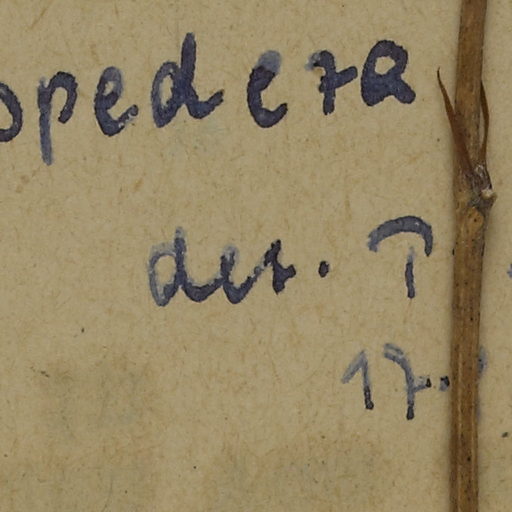 opedeza
det. T
17.